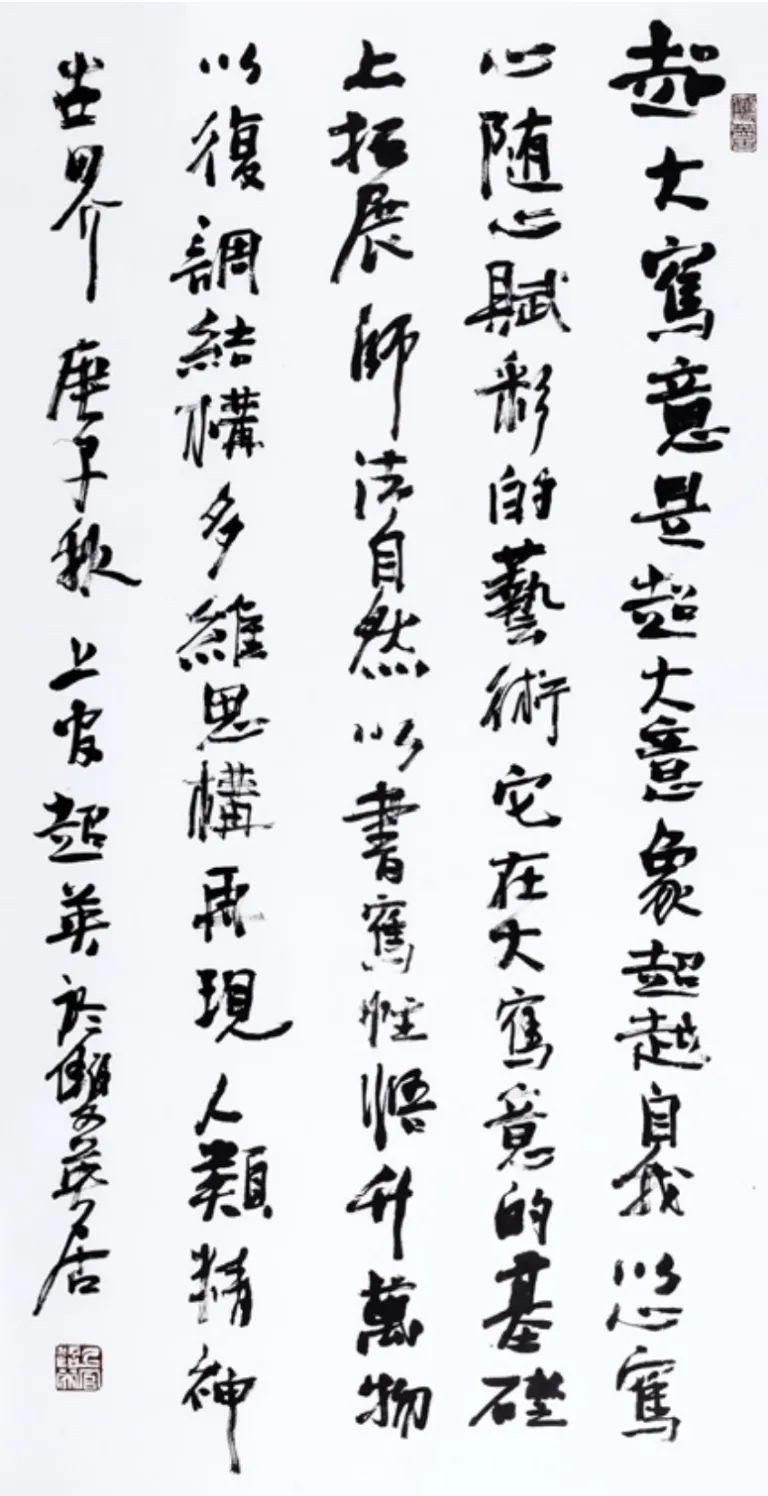 超大寫意是超大意象超越自我以心寫
心隨心賦彩的藝術它在大寫意的基礎
上拓展師法自然以書寫性悟升萬物
以復調結構多維思構再現人類精神
世界 庚子秋 上官超英於雙英居